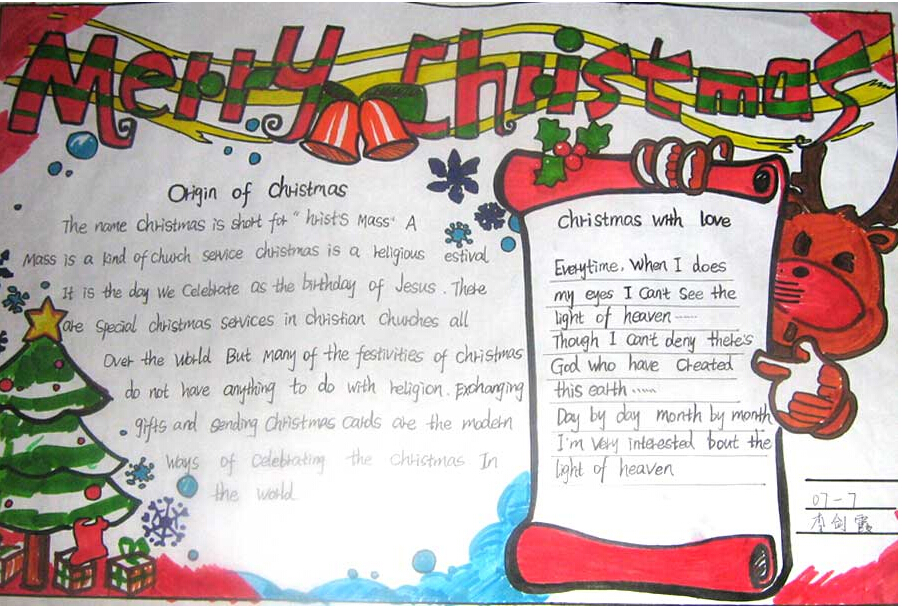 Merry Christmas
Origin of christmas
The name christmas is short for "hrist's Mass" A
Mass is a kind of church service christmas is a religious estival
It is the day we celebrate as the birthday of Jesus. There
are special christmas services in christian churches all
Over the world But many of the festivities of christmas
do not have anything to do with religion. Exchanging
gifts and sending christmas cards are the modern
ways of celebrating the christmas In
the world
christmas with love
Everytime. When I does
my eyes I can't see the
light of heaven......
Though I can't deny there's
God who have created
this earth.....
Day by day month by month
I'm very interested bout the
light of heaven
07-7
李剑霞